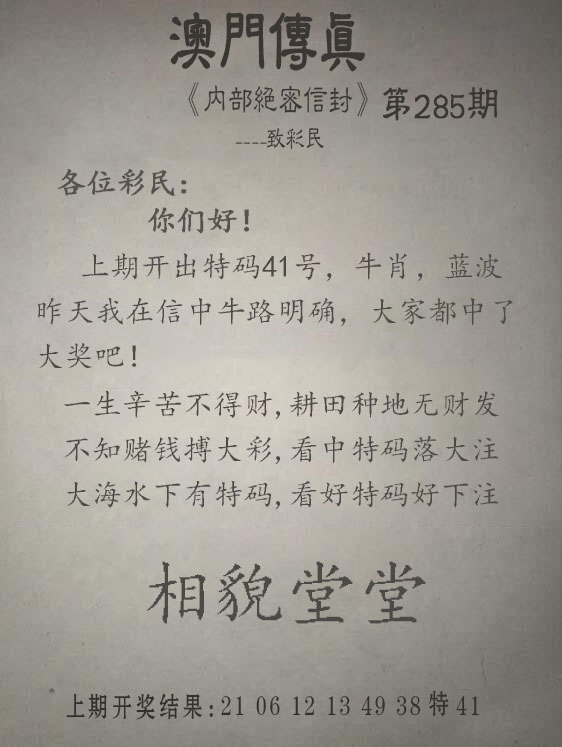 澳門傳真
《内部絕密信封》第285期
----致彩民
各位彩民:
你们好!
上期开出特码41号，牛肖，蓝波
昨天我在信中牛路明确，大家都中了
大奖吧!
一生辛苦不得财,耕田种地无财发
不知赌钱搏大彩,看中特码落大注
大海水下有特码,看好特码好下注
相貌堂堂
上期开奖结果:21 06 12 13 49 38 特 41